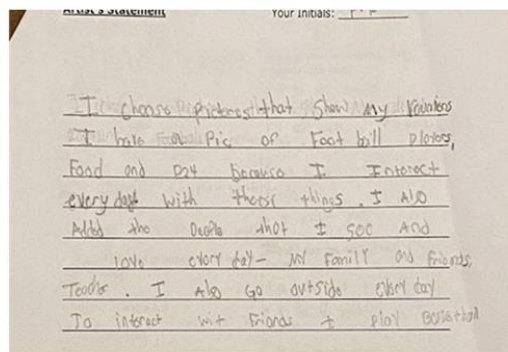 Artist's Statement Your Initials:
I choose picterest that show my
I have a Pic of Foot bill Players,
Food and because I Interact
every day with those things. I Also
Added the People that I see And
love every day- My Family and Friends,
Teacher. I Also Go outside every day
To interact wit Friends + play Basketball